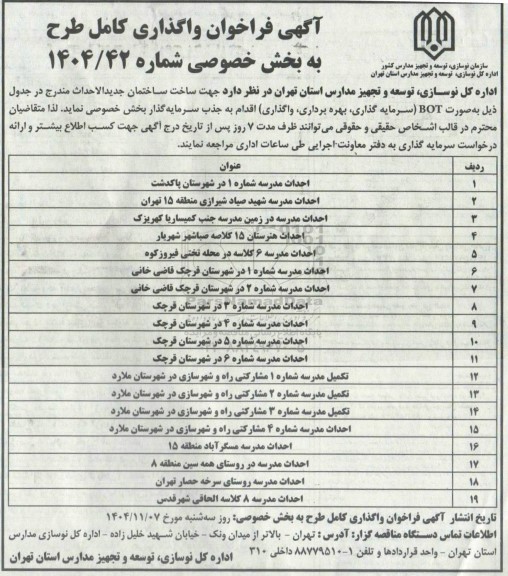 آگهی فراخوان واگذاری کامل طرح
به بخش خصوصی شماره ۱۴۰۴/۴۲
سازمان نوسازی، توسعه و تجهیز مدارس کشور
اداره کل نوسازی، توسعه و تجهیز مدارس استان تهران
اداره کل نوسازی، توسعه و تجهیز مدارس استان تهران در نظر دارد جهت ساخت ساختمان جدیدالاحداث مندرج در جدول
ذیل به‌صورت BOT (سرمایه گذاری، بهره برداری، واگذاری) اقدام به جذب سرمایه‌گذار بخش خصوصی نماید. لذا متقاضیان
محترم در قالب اشخاص حقیقی و حقوقی می‌توانند ظرف مدت ۷ روز پس از تاریخ درج آگهی جهت کسب اطلاع بیشتر و ارائه
درخواست سرمایه گذاری به دفتر معاونت اجرایی طی ساعات اداری مراجعه نمایند.
ردیف عنوان
۱ احداث مدرسه شماره ۱ در شهرستان پاکدشت
۲ احداث مدرسه شهید صیاد شیرازی منطقه ۱۵ تهران
۳ احداث مدرسه در زمین مدرسه جنب کمیساریا کهریزک
۴ احداث هنرستان ۱۵ کلاسه صباشهر شهریار
۵ احداث مدرسه ۶ کلاسه در محله تختی فیروزکوه
۶ احداث مدرسه شماره ۱ در شهرستان قرچک قاضی خانی
۷ احداث مدرسه شماره ۲ در شهرستان قرچک قاضی خانی
۸ احداث مدرسه شماره ۳ در شهرستان قرچک
۹ احداث مدرسه شماره ۴ در شهرستان قرچک
۱۰ احداث مدرسه شماره ۵ در شهرستان قرچک
۱۱ احداث مدرسه شماره ۶ در شهرستان قرچک
۱۲ تکمیل مدرسه شماره ۱ مشارکتی راه و شهرسازی در شهرستان ملارد
۱۳ تکمیل مدرسه شماره ۲ مشارکتی راه و شهرسازی در شهرستان ملارد
۱۴ تکمیل مدرسه شماره ۳ مشارکتی راه و شهرسازی در شهرستان ملارد
۱۵ احداث مدرسه شماره ۴ مشارکتی راه و شهرسازی در شهرستان ملارد
۱۶ احداث مدرسه مسگرآباد منطقه ۱۵
۱۷ احداث مدرسه در روستای همه سین منطقه ۸
۱۸ احداث مدرسه روستای سرخه حصار تهران
۱۹ احداث مدرسه ۸ کلاسه الحاقی شهرقدس
تاریخ انتشار آگهی فراخوان واگذاری کامل طرح به بخش خصوصی: روز سه‌شنبه مورخ ۱۴۰۴/۱۱/۰۷
اطلاعات تماس دستگاه مناقصه گزار: آدرس: تهران - بالاتر از میدان ونک - خیابان شهید خلیل زاده - اداره کل نوسازی مدارس
استان تهران - واحد قراردادها و تلفن ۱-۸۸۷۷۹۵۱۰ داخلی ۳۱۰
اداره کل نوسازی، توسعه و تجهیز مدارس استان تهران